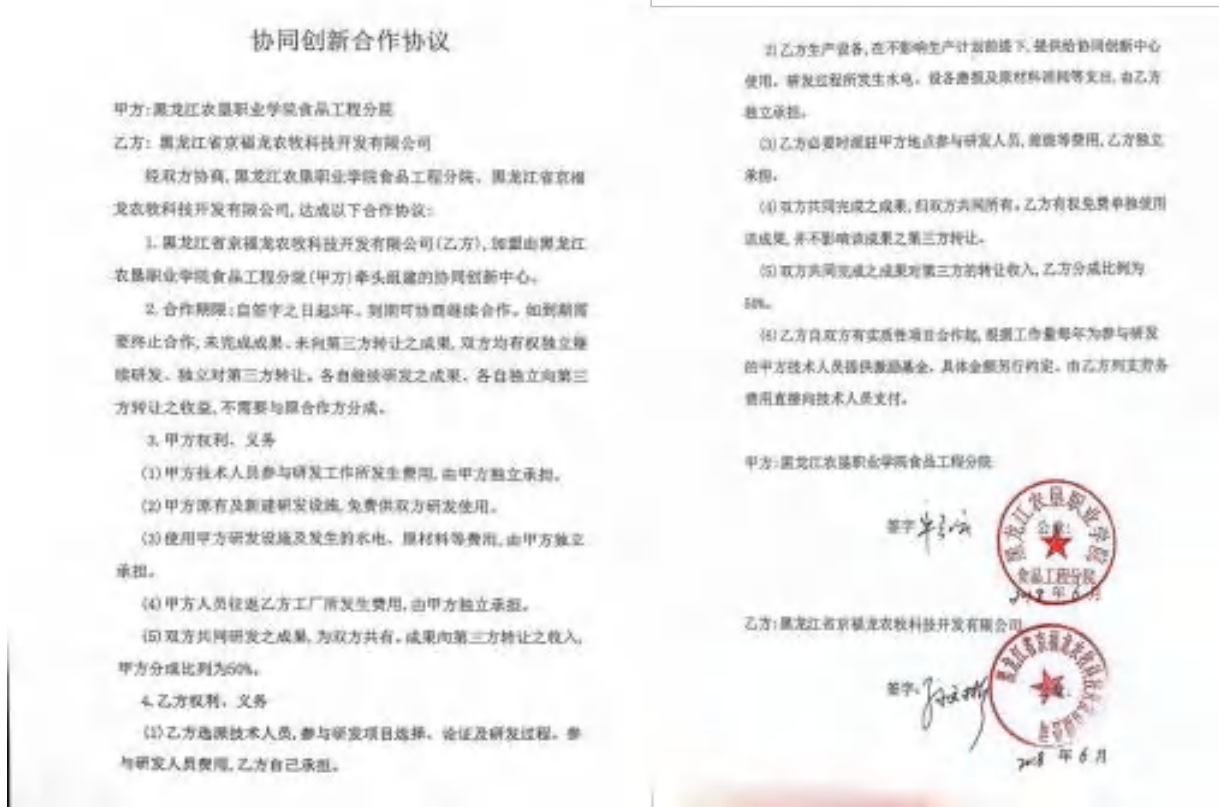 协同创新合作协议
甲方:黑龙江农垦职业学院食品工程分院
乙方: 黑龙江省京福龙农牧科技开发有限公司
经双方协商,黑龙江农垦职业学院食品工程分院、黑龙江省京福
龙农牧科技开发有限公司,达成以下合作协议:
1.黑龙江省京福龙农牧科技开发有限公司(乙方),加盟由黑龙江
农垦职业学院食品工程分院(甲方)牵头组建的协同创新中心。
2.合作期限:自签字之日起3年。到期可协商继续合作。如到期需
要终止合作,未完成成果、未向第三方转让之成果,双方均有权独立继
续研发、独立对第三方转让。各自继续研发之成果、各自独立向第三
方转让之收益,不需要与原合作方分成。
3.甲方权利、义务
(1)甲方技术人员参与研发工作所发生费用,由甲方独立承担。
(2)甲方原有及新建研发设施,免费供双方研发使用。
(3)使用甲方研发设施及发生的水电、原材料等费用,由甲方独立
承担。
(4)甲方人员往返乙方工厂所发生费用,由甲方独立承担。
(5)双方共同研发之成果,为双方共有。成果向第三方转让之收入,
甲方分成比列为50%。
4.乙方权利、义务
(1)乙方选派技术人员,参与研发项目选择、论证及研发过程。参
与研发人员费用,乙方自己承担。
2)乙方生产设备,在不影响生产计划前提下,提供给协同创新中心
使用。研发过程所发生水电、设备磨损及原材料消耗等支出,由乙方
独立承担。
(3)乙方必要时派驻甲方地点参与研发人员,差旅等费用,乙方独立
承担。
(4)双方共同完成之成果,归双方共同所有。乙方有权免费单独使用
该成果,并不影响该成果之第三方转让。
(5)双方共同完成之成果对第三方的转让收入,乙方分成比例为
50%。
(6)乙方自双方有实质性项目合作起,根据工作量每年为参与研发
的甲方技术人员提供激励基金。具体金额另行约定。由乙方列支劳务
费用直接向技术人员支付。
甲方:黑龙江农垦职业学院食品工程分院
签字
公章:
黑龙江农垦职业学院
食品工程分院
2018 年 6 月
乙方:黑龙江省京福龙农牧科技开发有限公司
签字:
黑龙江省京福龙农牧科技开发有限公司
2018 年 6 月